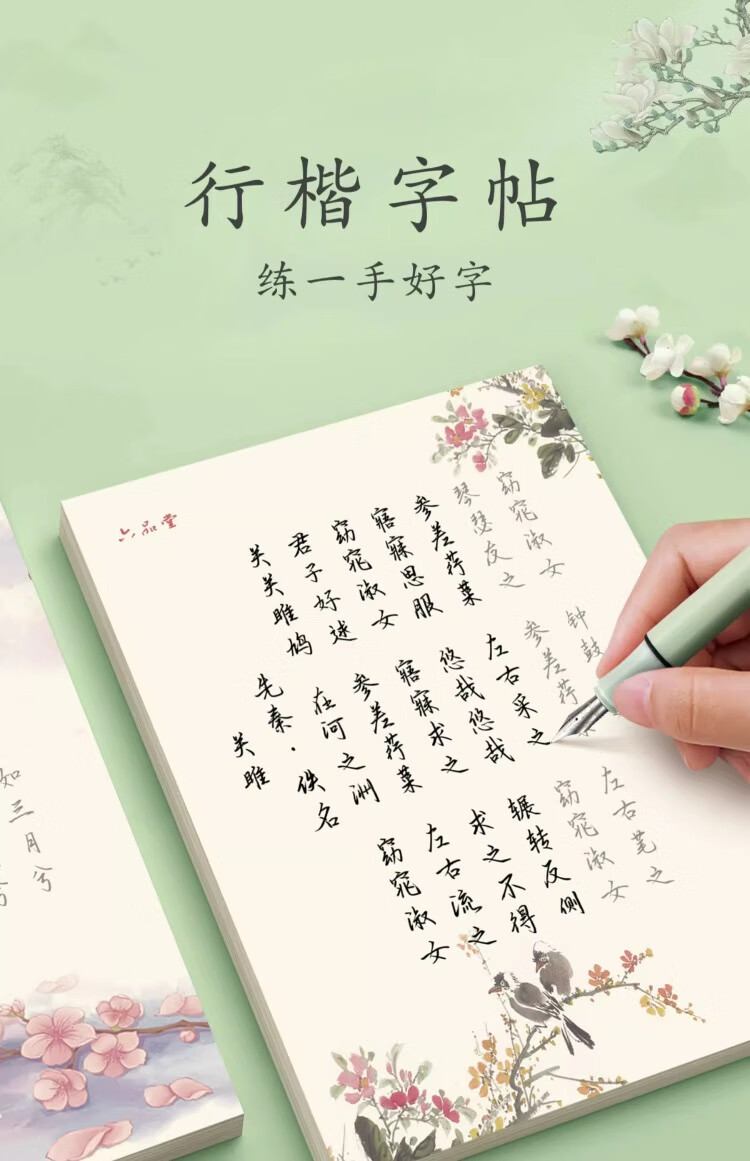 行楷字帖
练一手好字
六品堂
关雎
先秦·佚名
关关雎鸠
在河之洲
窈窕淑女
君子好逑
参差荇菜
左右流之
窈窕淑女
寤寐求之
求之不得
寤寐思服
悠哉悠哉
辗转反侧
参差荇菜
左右采之
窈窕淑女
琴瑟友之
参差荇
左右芼之
窈窕淑女
钟鼓
如三月兮